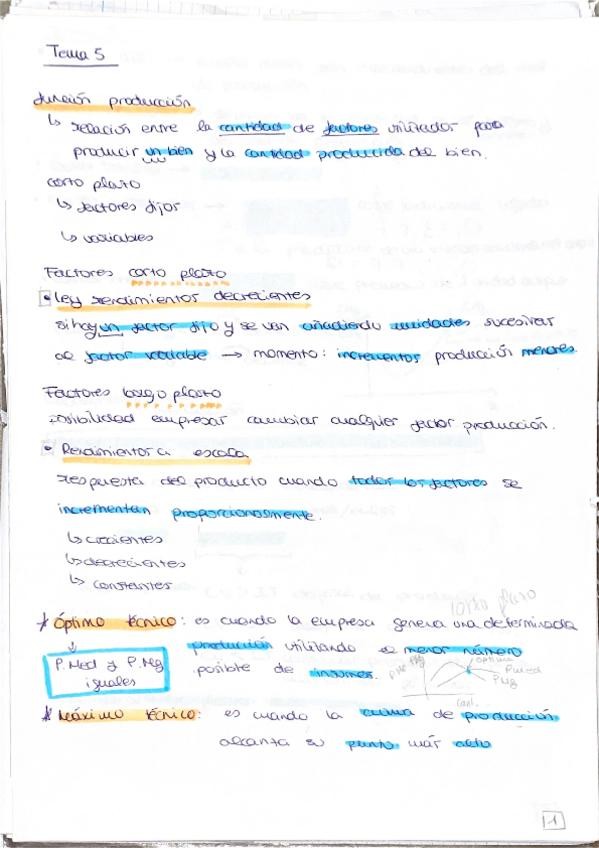 Tema 5
función producción
↳ relación entre la cantidad de factores utilizados para
producir un bien y la cantidad producida del bien.
corto plazo
↳ factores fijos
↳ variables
Factores corto plazo
• Ley rendimientos decrecientes
si hay un factor fijo y se van añadiendo unidades sucesivas
de factor variable → momento: incrementos producción menores.
Factores largo plazo
posibilidad empresas cambiar cualquier factor producción.
• Rendimientos a escala
respuesta del producto cuando todos los factores se
incrementan proporcionalmente.
↳ crecientes
↳ decrecientes
↳ constantes
corto plazo
* Óptimo técnico: es cuando la empresa genera una determinada
producción utilizando el menor número
posible de insumos.
↓
P.Med y P.Mg
iguales
óptimo
PMed
PMg
Cant.
* Máximo técnico: es cuando la curva de producción
alcanza su punto más alto
1